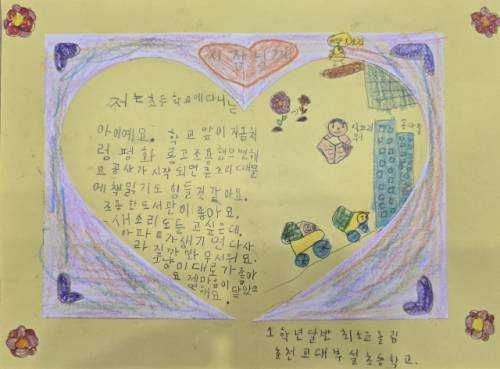 시장님께
저는 초등학교에 다니는
아이예요. 학교 앞이 지금처
럼 평화롭고 조용했으면 해
요 공사가 시작되면 큰 소리 때문
에 책 읽기도 힘들것 같아요.
조용한 도서관이 좋아요.
새소리도 듣고 싶은데,
아파트가 생기면 다 사
라질까봐 무서워요.
그냥 이대로가 좋아
요 제 마음이 닿았으
면 해요.
새소리
공사
1학년 달반 최소교 올림
춘천교대부설초등학교.